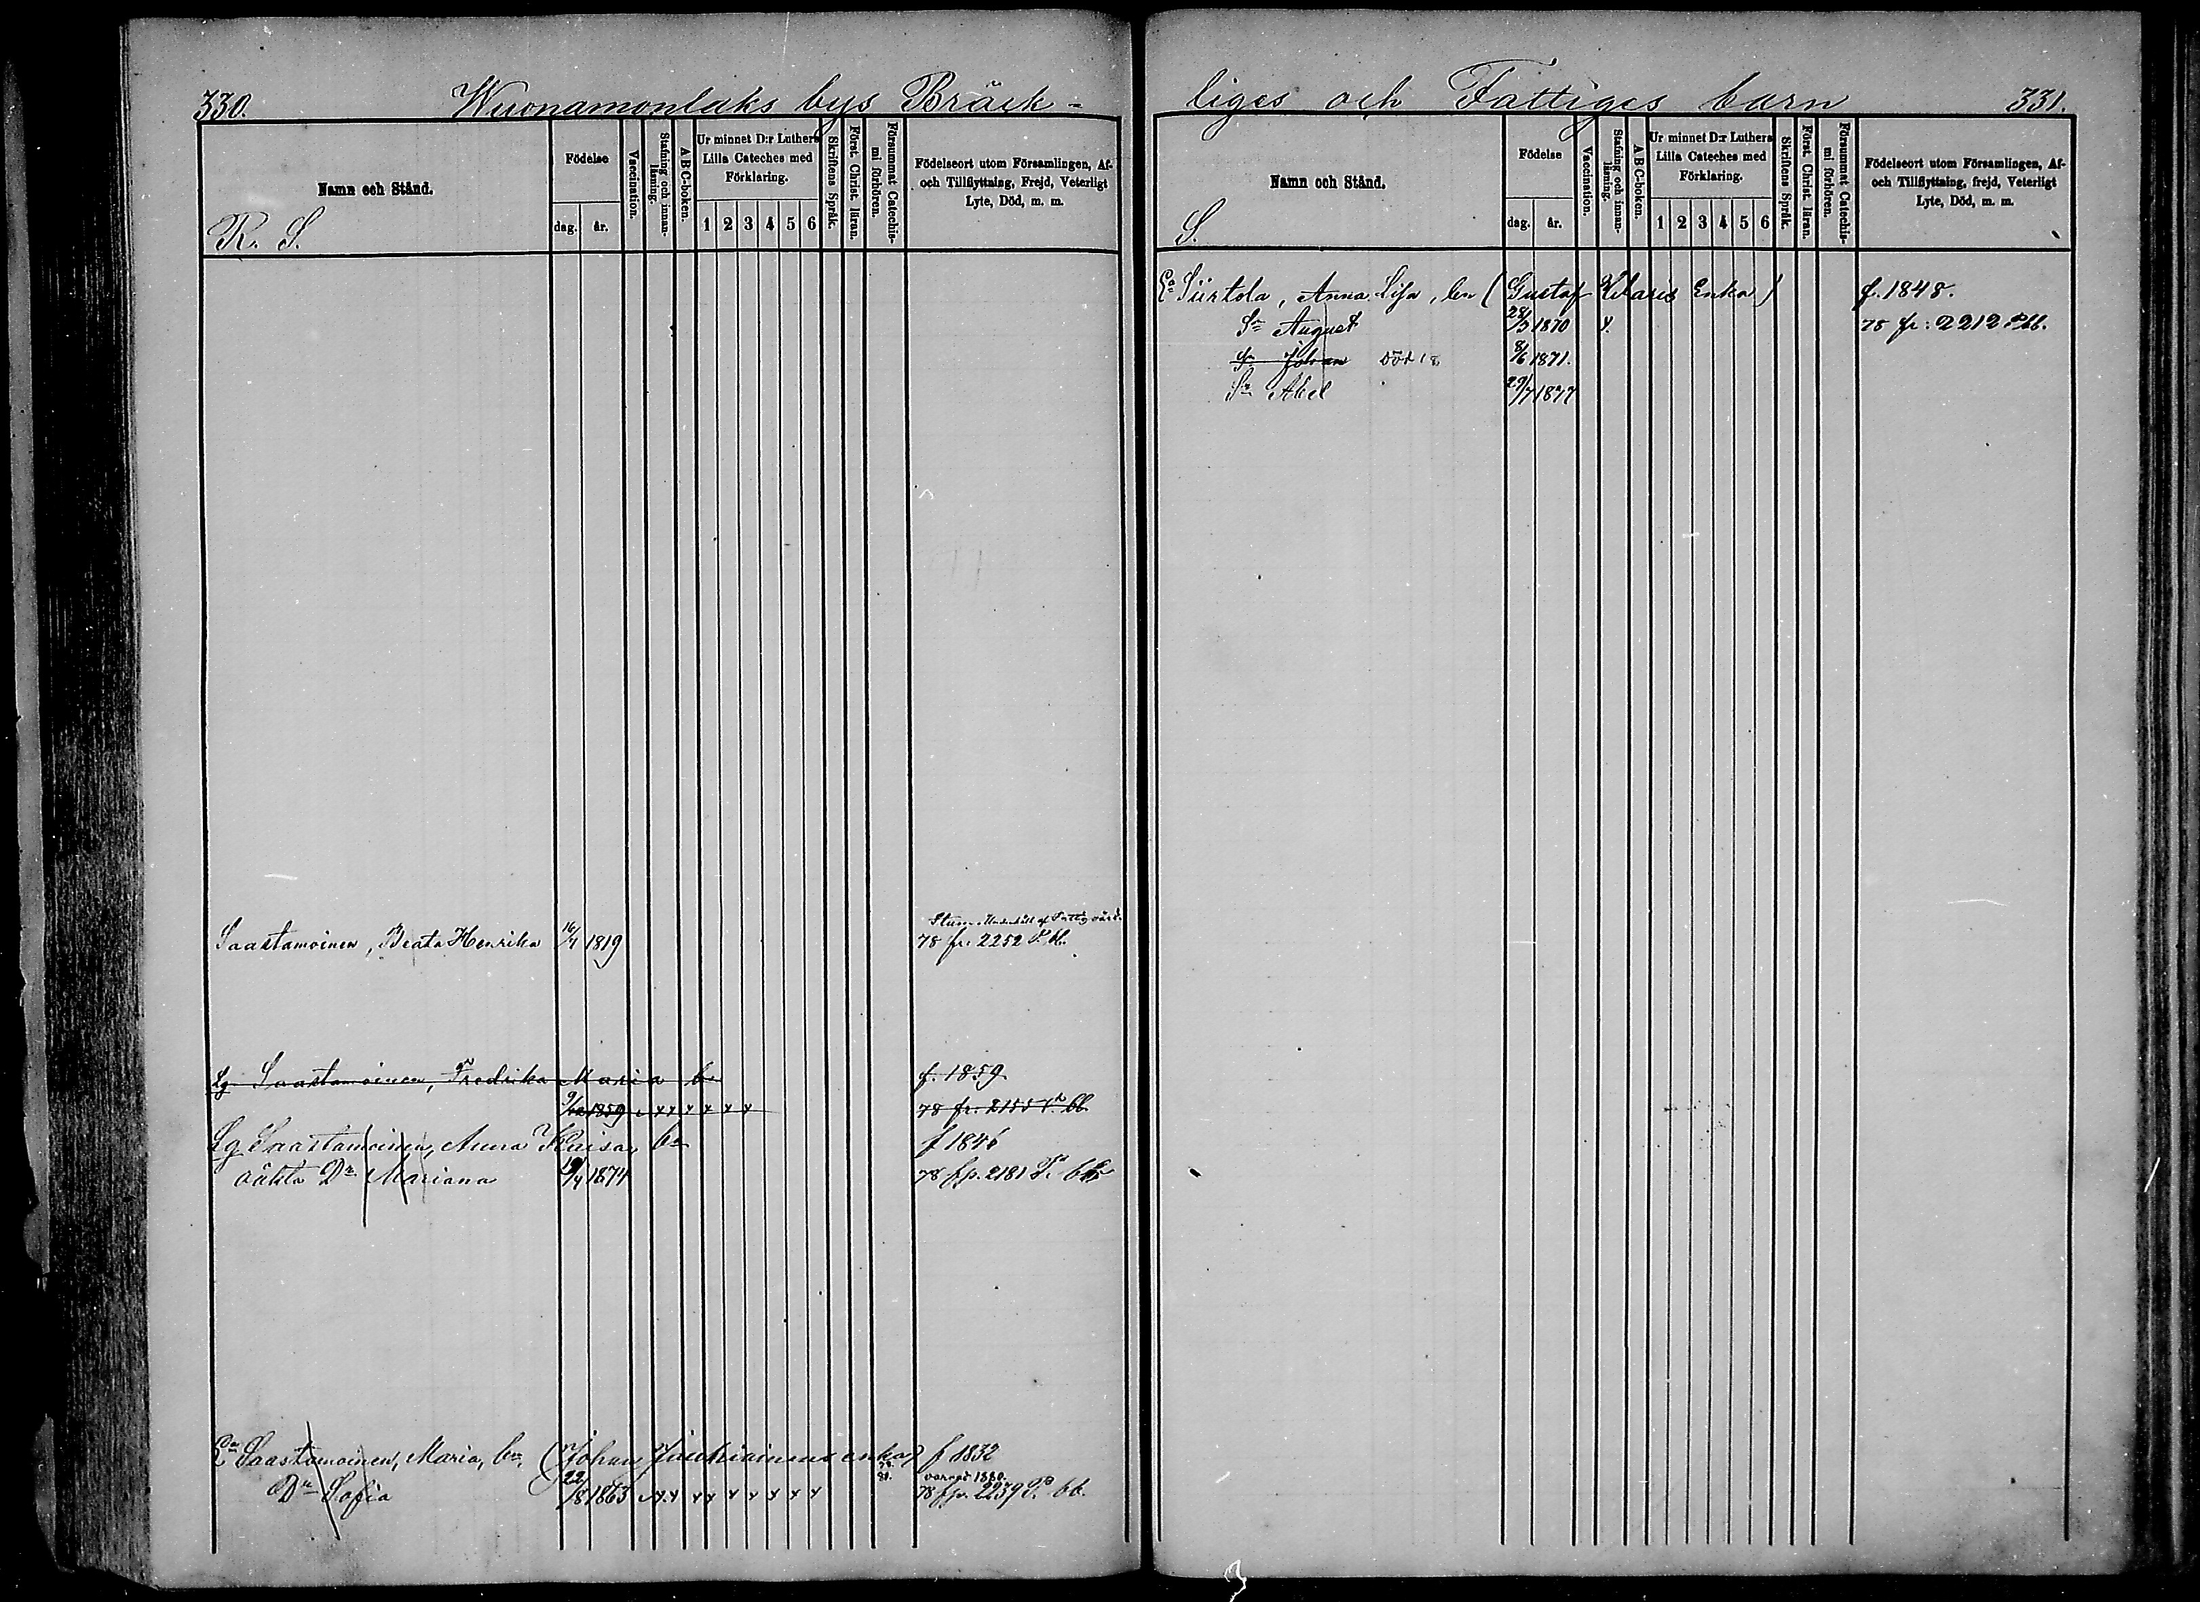 330.
Wuonamonlaks bys Bräck-
Namn och Stånd.
R. S.
Födelse
dag. år.
Vaccination.
Stafning och innanläsning.
A B C-boken.
Ur minnet D:r Luthers
Lilla Cateches med
Förklaring.
1 2 3 4 5 6
Skriftens Språk.
Först. Christ. läran.
Försummat Catechismi förhören.
Födelseort utom Församlingen, Af-
och Tillflyttning, Frejd, Veterligt
Lyte, Död, m. m.
Stum Underhåll af Fattigvård.
Saastamoinen, Beata Henrika 16/4 1819 78 fr. 2252 P. bb.
Lg Saastamoinen, Fredrika Maria bn f. 1859
9/12 1859 x x x x x x 78 fr. 2155 P. bb.
Lg Saastamoinen, Anna Kaisa, bn f 1846
oäkta Dr Mariana 19/4 1874 78 fr. 2181 P. bb
En Saastamoinen, Maria, bn, (Johan enka) f 1832
78. 80. 1880.
Dr Sofia 22/8 1863 x x x x x x x x 78 fr. 2239 P. bb.
liges och Fattiges barn
331.
Namn och Stånd.
S.
Födelse
dag. år.
Vaccination.
Stafning och innanläsning.
A B C-boken.
Ur minnet D:r Luthers
Lilla Cateches med
Förklaring.
1 2 3 4 5 6
Skriftens Språk.
Först. Christ. läran.
Försummat Catechismi förhören.
Födelseort utom Församlingen, Af-
och Tillflyttning, frejd, Veterligt
Lyte, Död, m. m.
En Siirtola, Anna Lisa, bn (Gustaf Enka) f. 1848.
Sn August 28/5 1870 x. 78 fr: 2212 P bb.
Sn Johan död 8/6 1871.
Sn Abel 29/7 1877
3